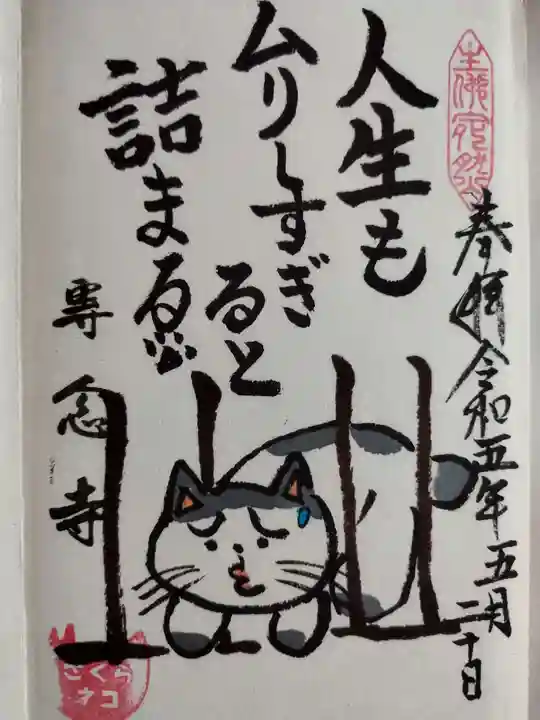 奉拝 令和五年五月二十日
人生も
ムリしすぎ
ると
詰まる
專念寺
ごくら
ネコ